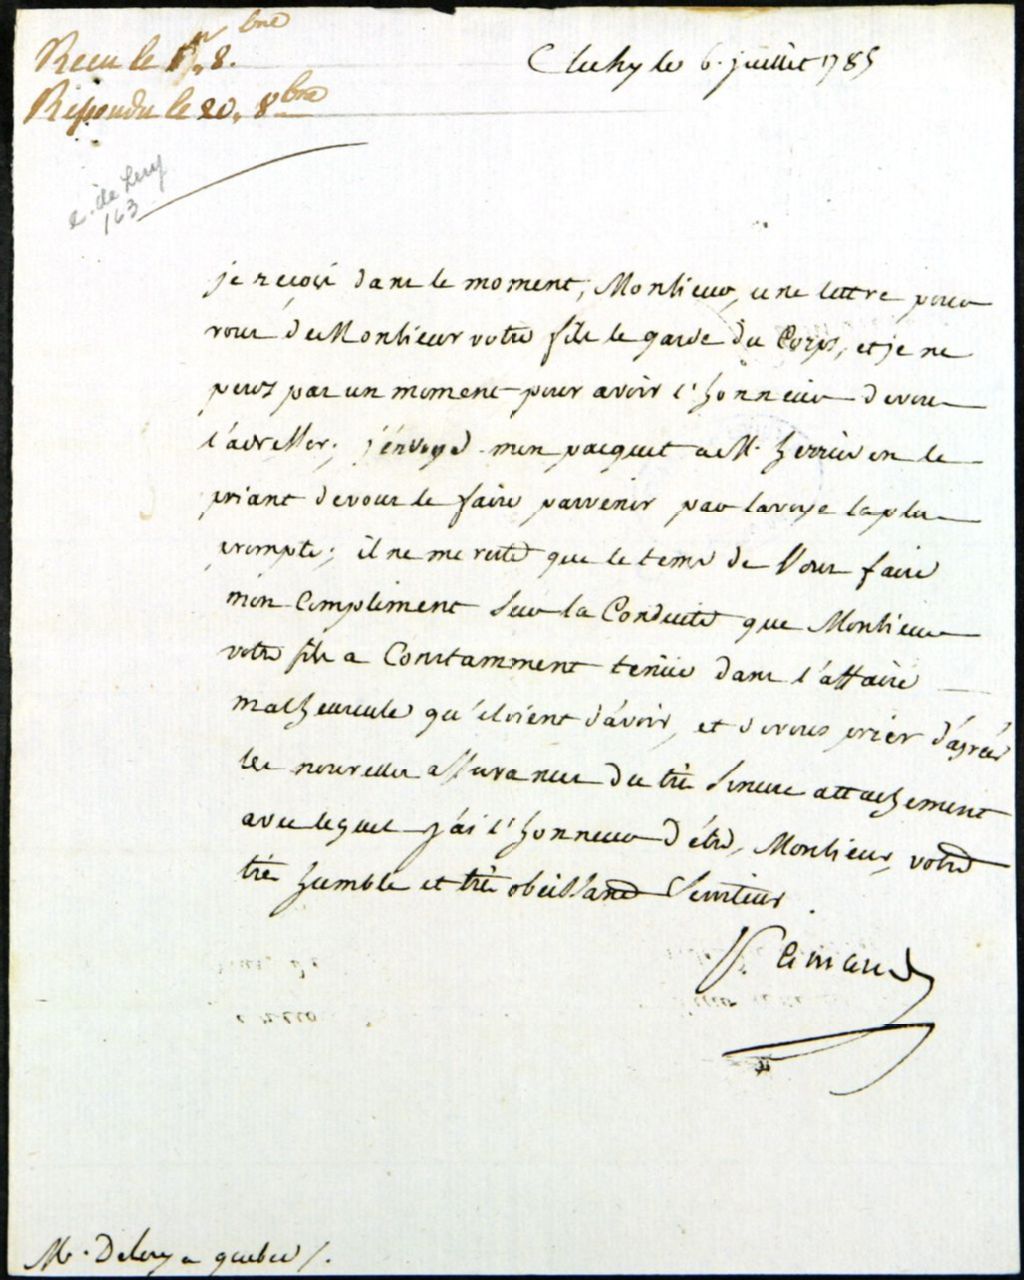 Recu le 1er 8.bre
Répondu le 20. 8bre
Clichy le 6. juillet 1785
de Lery
163
je reçois dans le moment, Monsieur, une lettre pour
vous de Monsieur votre fils le garde du Corps, et je ne
perds pas un moment pour avoir l'honneur de vous
l'adresser; j'envoye mon pacquet a M. en le
priant de vous le faire parvenir par la voye la plus
prompte; il ne me reste que le tems de Vous faire
mon Compliment sur la Conduite que Monsieur
votre fils a Constamment tenüe dans l'affaire
malheureuse qu'il vient d'avoir, et de vous prier d'agréer
les nouvelles assurances du très sincere attachement
avec lequel j'ai l'honneur d'être, Monsieur, votre
très humble et très obéissand Serviteur.
M. Delery a quebec /.